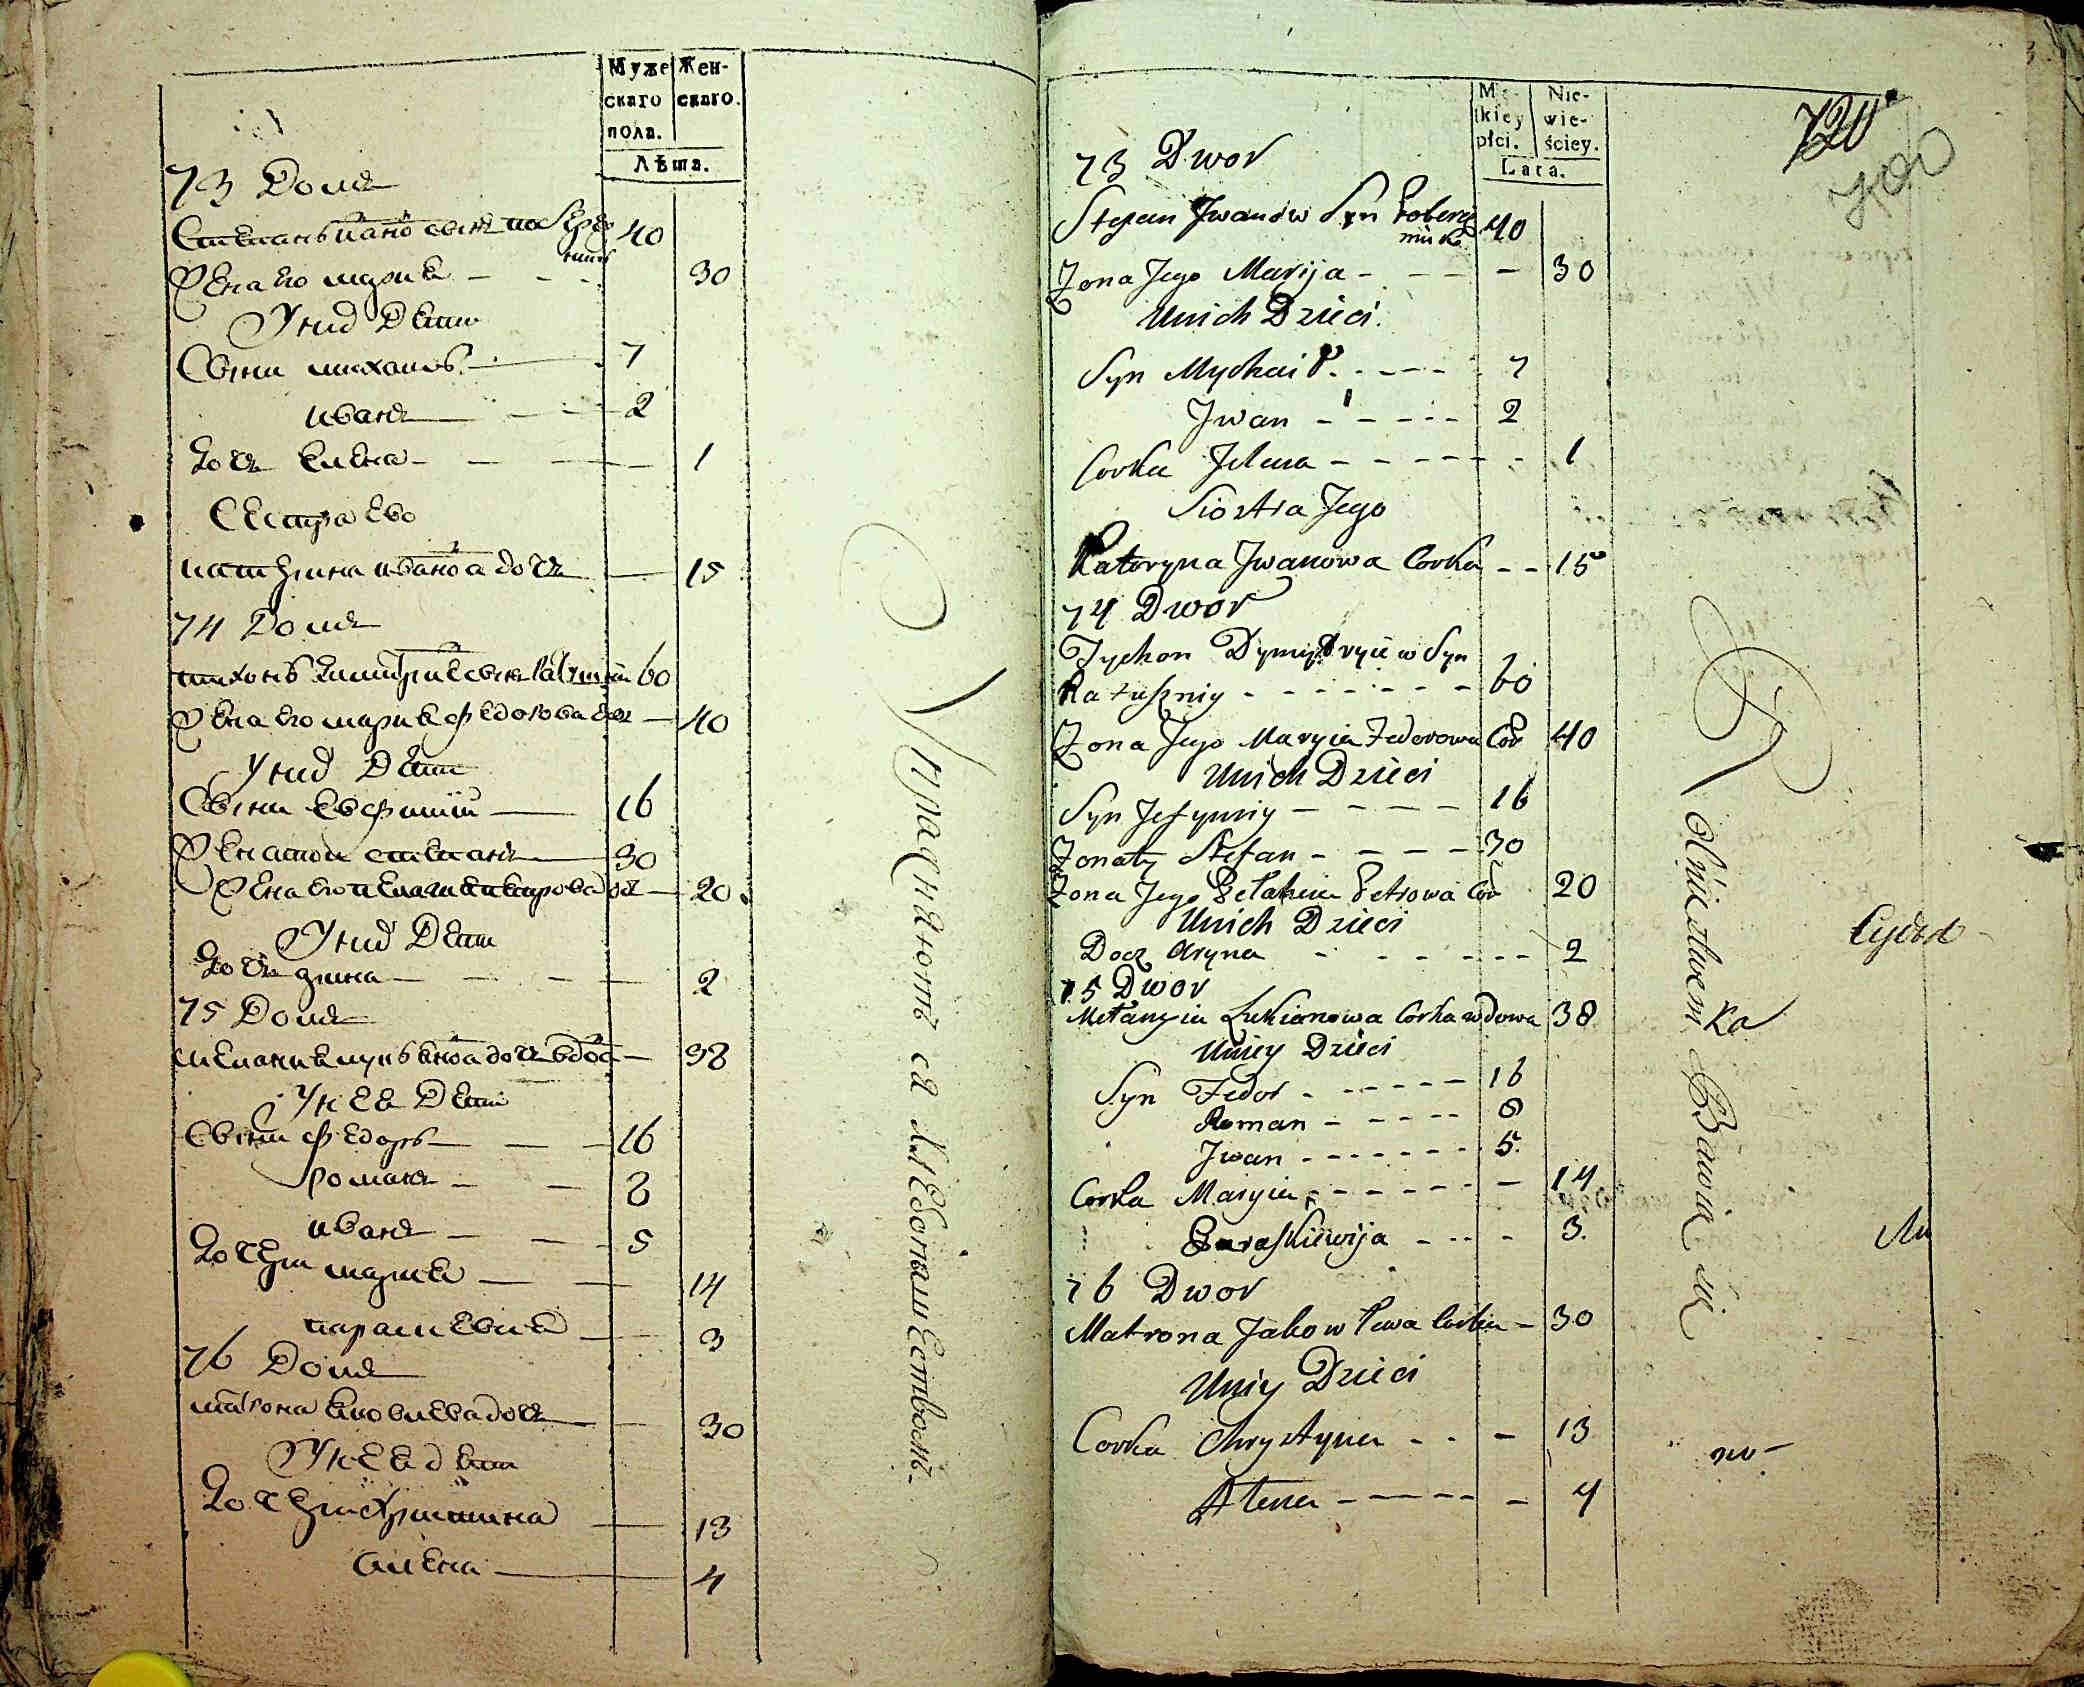 Муже
скаго
пола.
Жен-
скаго.
Лѣта.
73 Домъ
Степанъ Ивановъ сынъ
40
Жена его Мария - - - 30
У них Дети
Сыни Михаилъ 7
Иванъ 2
Дочь Елена 1
Сестра Ево
Катерина Иванова дочь 15
74 Домъ
Тихонъ Димитриевъ сынъ 60
Жена его Мария Федорова дочь 40
У них Дети
Сыни Евфимий 16
Женатой Степанъ 30
Жена его Пелагия Петрова дочь 20
У них Дети
Дочь Арина 2
75 Домъ
Мелания Лукьянова дочь вдова 38
У нее Дети
Сыни Федоръ 16
Романъ 8
Иванъ 5
Дочери Мария 14
Параскевия 3
76 Домъ
Матрона Яковлева дочь 30
У нее дети
Дочери Христина 13
Алена 4
Упражняютца хлебопашествомъ
Mę-
skiey
płci.
Nie-
wie-
ściey.
Lata.
720
73 Dwor
Stepan Jwanow Syn 40
Zona Jego Marija - - - - 30
Unich Dzieci.
Syn Mychaił. - - - - 7
Jwan - - - - - 2
Corka Jelena - - - - - - 1
Siostra Jego
Kateryna Jwanowa Corka - - 15
74 Dwor
Tychon Dymitryiew Syn
Kałuszniy - - - - - - - 60
Zona Jego Maryia Fedorowa Cor 40
Unich Dzieci
Syn Jefymiy - - - - 16
Zonaty Stefan - - - - 30
Zona Jego Pełahia Petrowa Cor 20
Unich Dzieci
Docz Aryna - - - - - - - 2
75 Dwor
Mełanyia Łukianowa Corka wdowa 38
Uniey Dzieci
Syn Fedor - - - - - - 16
Roman - - - - - 8
Jwan - - - - - - - 5.
Corka Maryia - - - - - - - 14
Paraskiewija - - - - 3.
76 Dwor
Matrona Jakowlewa Corka - 30
Uniy Dzieci
Corka Chrystyna - - - 13
Alena - - - - - - 4
Rolnictwem Bawią się
Ka